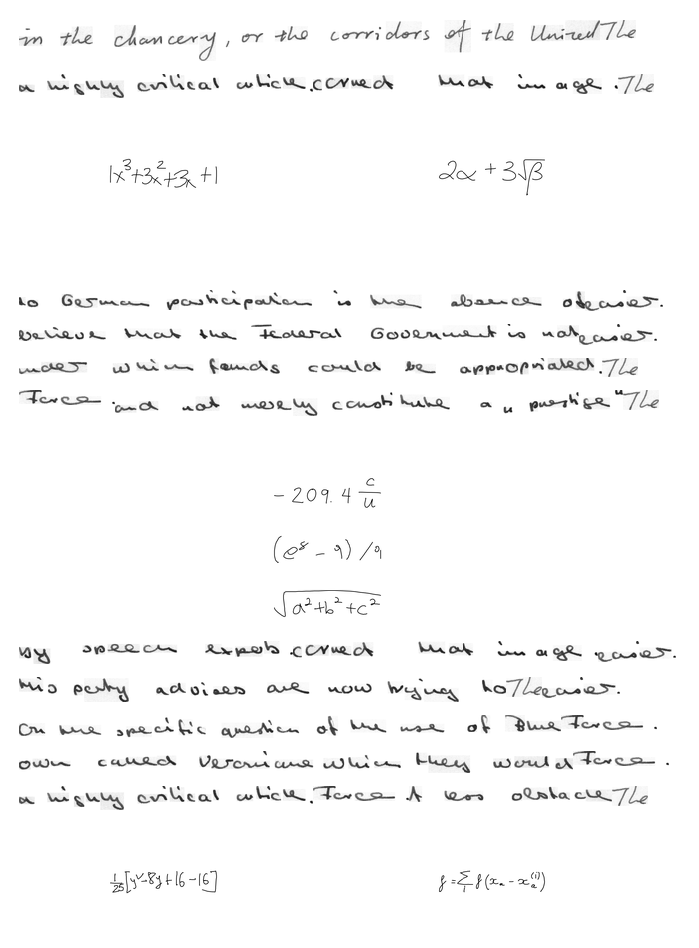 in the chancery, or the corridors of the United The
a highly critical article. carved that image. The
1x^3+3x^2+3x+1
2α+3√β
to German participation is the absence of easier.
believe that the Federal Government is not easier.
under which funds could be appropriated. The
Force and not merely constitute a "prestige" The
-209.4 c/u
(e^8-9)/9
√(a^2+b^2+c^2)
by speech experts. carved that image easier.
His party advisers are now trying to The easier.
On the specific question of the use of Blue Force.
own called which they would Force.
a highly critical article. Force A less obstacle The
1/25[y^2-8y+16-16]